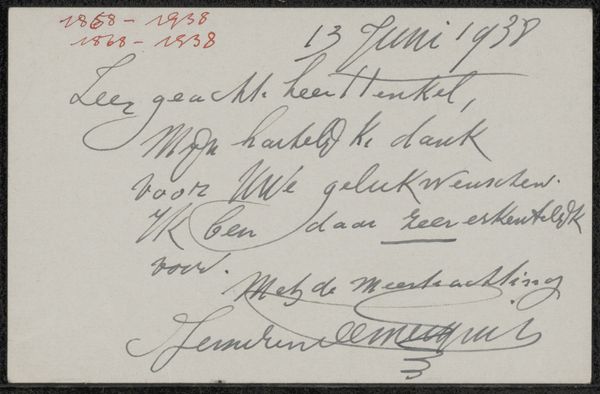 1868 - 1938
1868 - 1938
13 Juni 1938
Zeer geachte heer Henkel,
Mijn hartelijke dank
voor UWe gelukwenschen.
Ik ben daar zeer erkentelijk
voor.
Met de Meeste achting